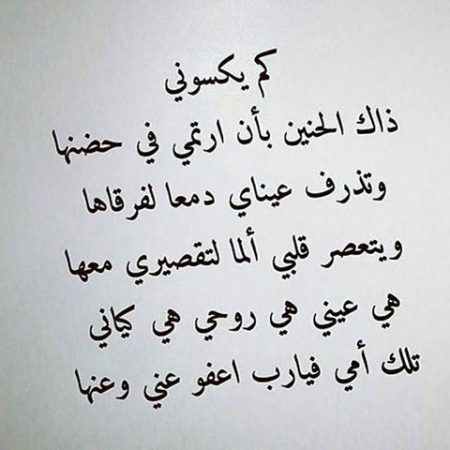 كم يكسوني
ذاك الحنين بأن ارتمي في حضنها
وتذرف عيناي دمعا لفرقاها
ويتعصر قلبي ألما لتقصيري معها
هي عيني هي روحي هي كياني
تلك أمي فيارب اعفو عني وعنها